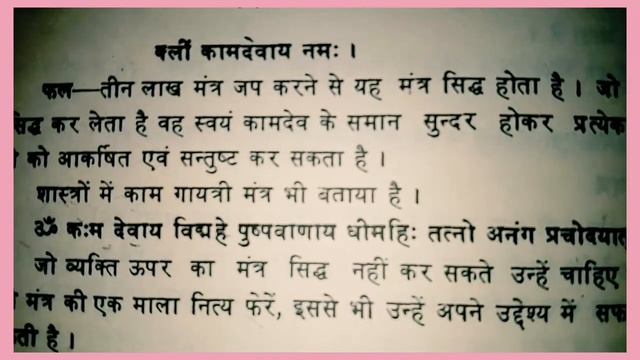 क्लीं कामदेवाय नमः ।
फल—तीन लाख मंत्र जप करने से यह मंत्र सिद्ध होता है । जो
सिद्ध कर लेता है वह स्वयं कामदेव के समान सुन्दर होकर प्रत्येक
को आकर्षित एवं सन्तुष्ट कर सकता है ।
शास्त्रों में काम गायत्री मंत्र भी बताया है ।
ॐ कःम देवाय विद्महे पुष्पवाणाय धीमहिः तत्नो अनंग प्रचोदयात
जो व्यक्ति ऊपर का मंत्र सिद्ध नहीं कर सकते उन्हें चाहिए
मंत्र की एक माला नित्य फेरें, इससे भी उन्हें अपने उद्देश्य में सफ
ती है ।